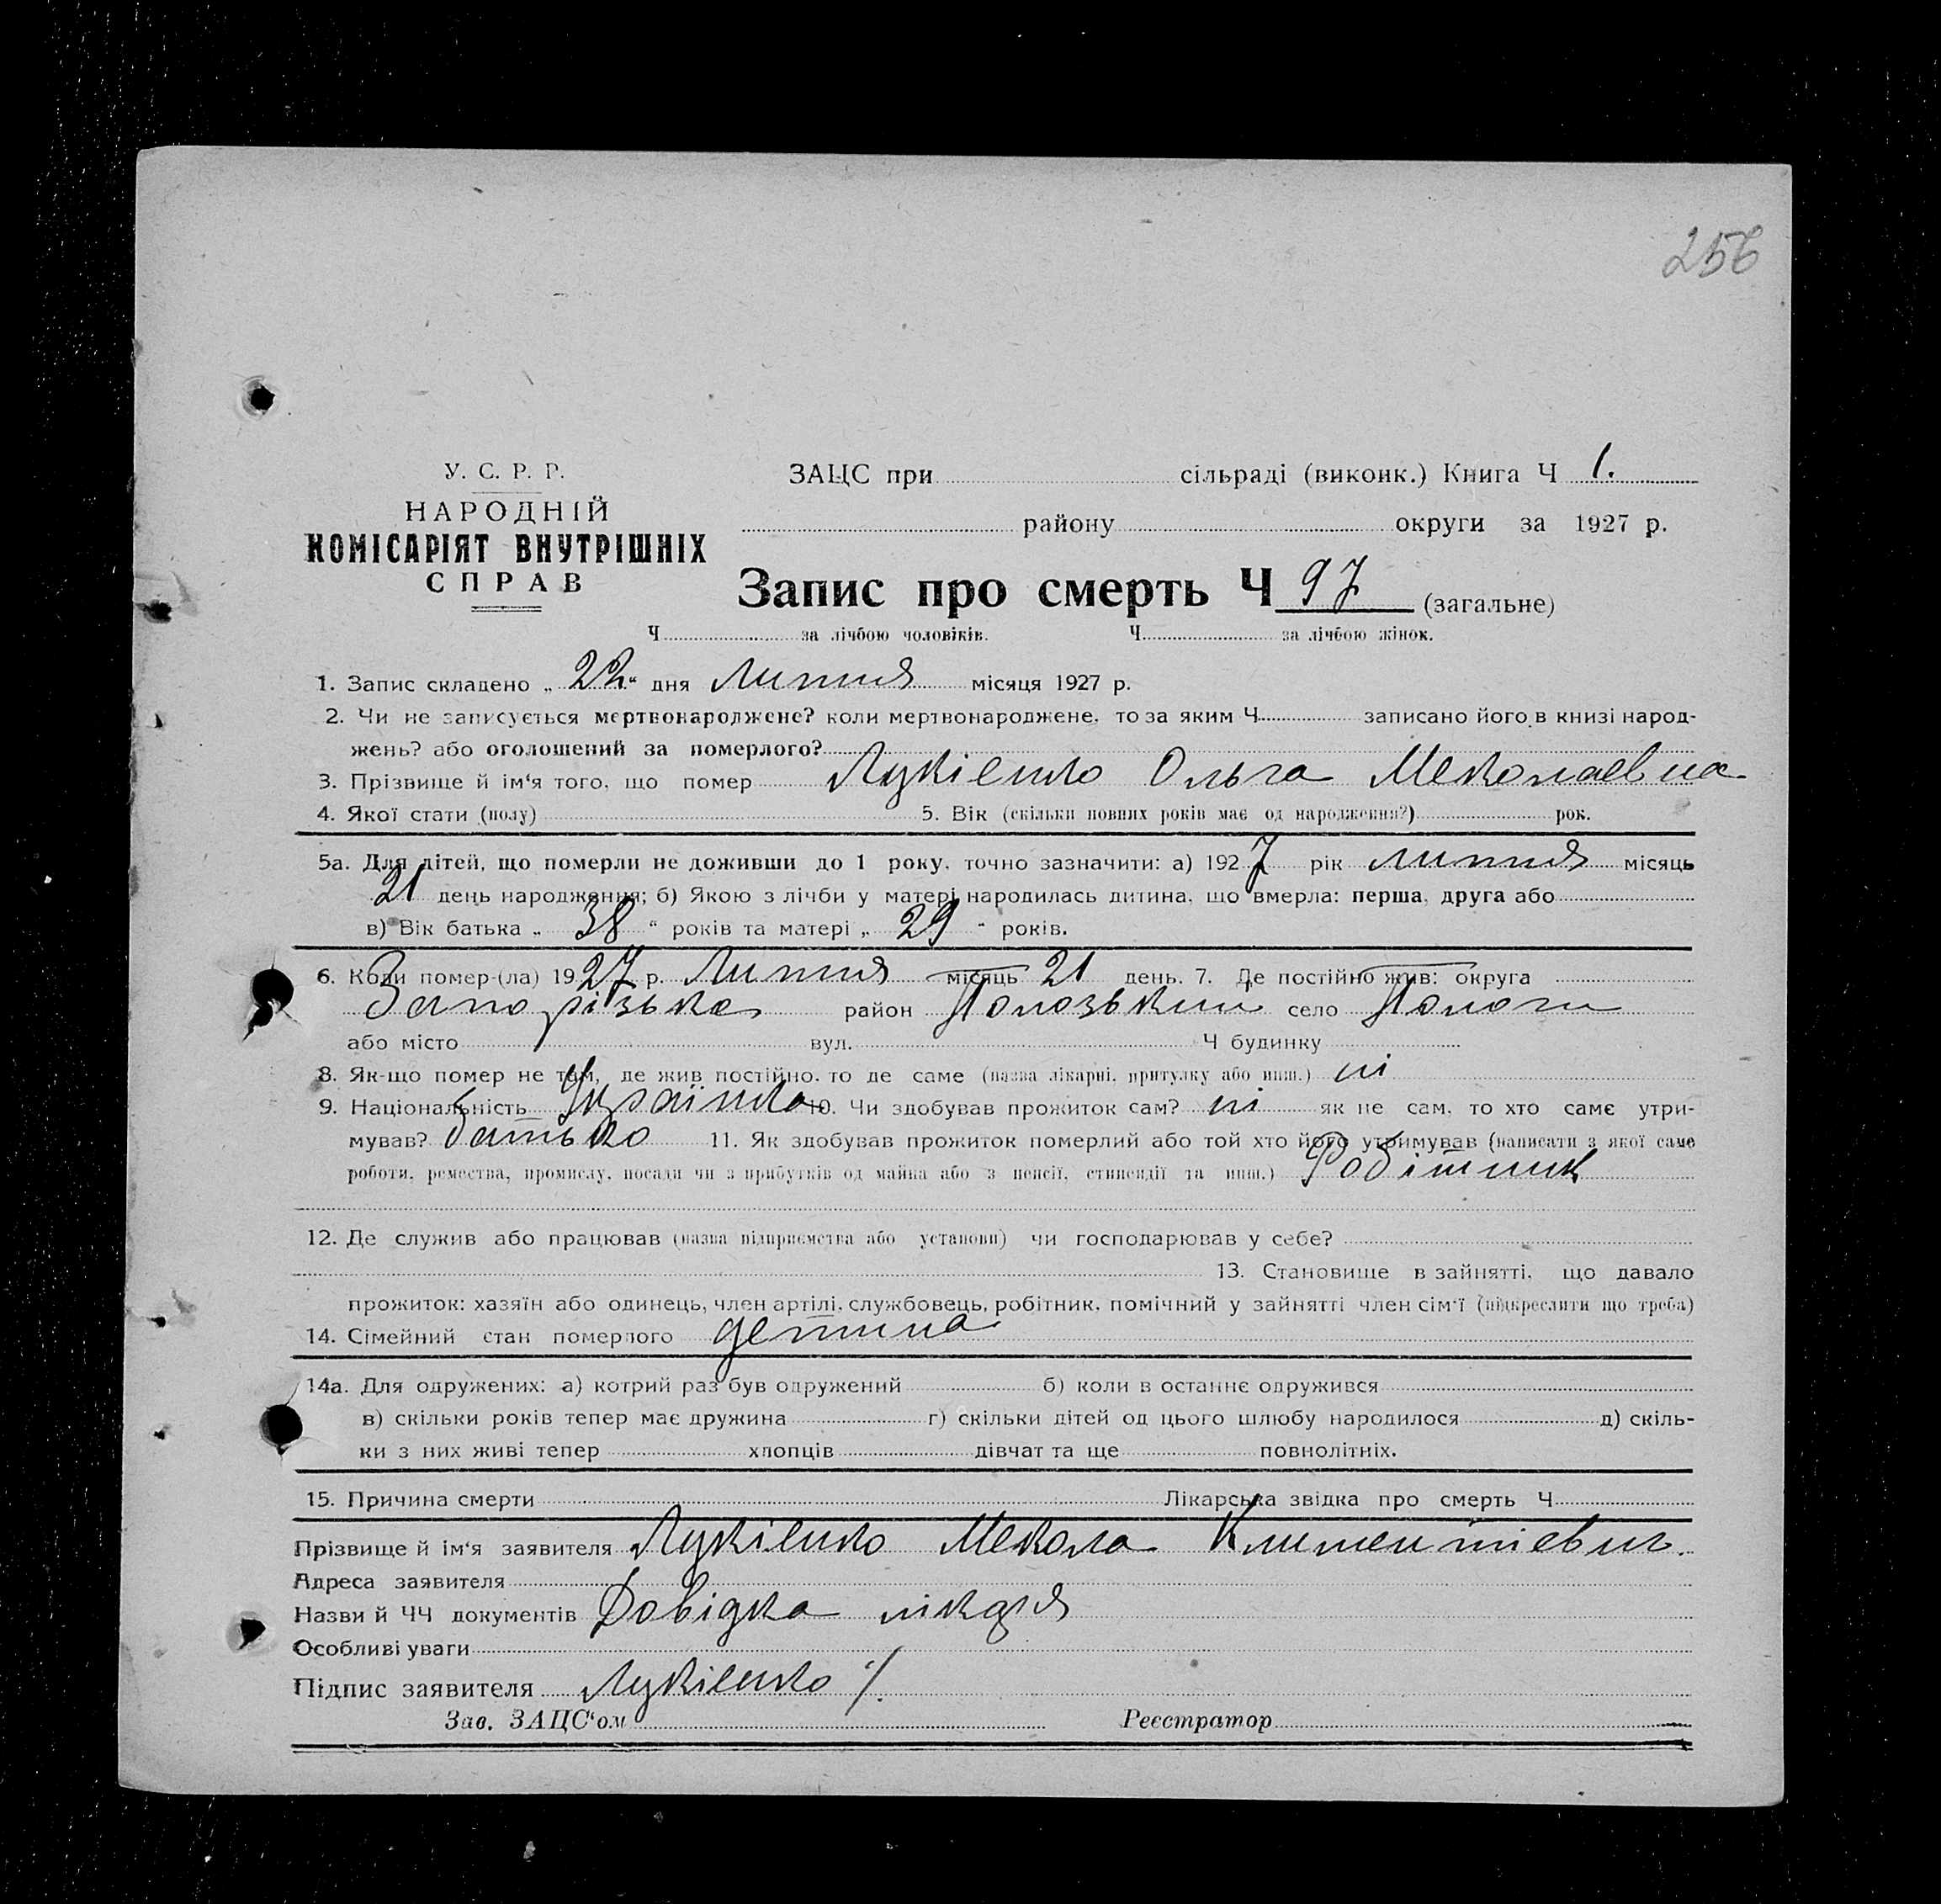 256
У. С. Р. Р.
НАРОДНІЙ
КОМІСАРІЯТ ВНУТРІШНІХ
СПРАВ
ЗАЦС при сільраді (виконк.) Книга Ч 1.
району округи за 1927 р.
Запис про смерть Ч 97 (загальне)
Ч за лічбою чоловіків. Ч за лічбою жінок.
1. Запис складено „ 22 “ дня Липня місяця 1927 р.
2. Чи не записується мертвонароджене? коли мертвонароджене, то за яким Ч записано його в книзі народ-
жень? або оголошений за померлого?
3. Прізвище й ім‘я того, що помер Лукіенко Ольга Меколаевна
4. Якої стати (полу) 5. Вік (скільки повних років має од народження?) рок.
5а. Для дітей, що померли не доживши до 1 року, точно зазначити: а) 1927 рік Липня місяць
21 день народження; б) Якою з лічби у матері народилась дитина, що вмерла: перша, друга або
в) Вік батька „ 38 “ років та матері „ 29 “ років.
6. Коли помер-(ла) 1927 р. Липня місяць 21 день. 7. Де постійно жив: округа
Запорізька район Пологівський село Пологи
або місто вул. Ч будинку
8. Як-що помер не там, де жив постійно, то де саме (назва лікарні, притулку або инш.) ні
9. Національність Українка 10. Чи здобував прожиток сам? ні як не сам, то хто саме утри-
мував? батько 11. Як здобував прожиток померлий або той хто його утримував (написати з якої саме
роботи, ремества, промислу, посади чи з прибутків од майна або з пенсії, стипендії та инш.) Робітник
12. Де служив або працював (назва підприємства або установи) чи господарював у себе?
13. Становище в зайнятті, що давало
прожиток: хазяїн або одинець, член артілі, службовець, робітник, помічний у зайнятті член сім‘ї (підкреслити що треба)
14. Сімейний стан померлого детина
14а. Для одружених: а) котрий раз був одружений б) коли в останнє одружився
в) скільки років тепер має дружина г) скільки дітей од цього шлюбу народилося д) скіль-
ки з них живі тепер хлопців дівчат та ще повнолітніх.
15. Причина смерти Лікарська звідка про смерть Ч
Прізвище й ім‘я заявителя Лукіенко Мекола Климентіевич.
Адреса заявителя
Назви й ЧЧ документів Довідка лікаря
Особливі уваги
Підпис заявителя Лукіенко
Зав. ЗАЦС‘ом Реєстратор